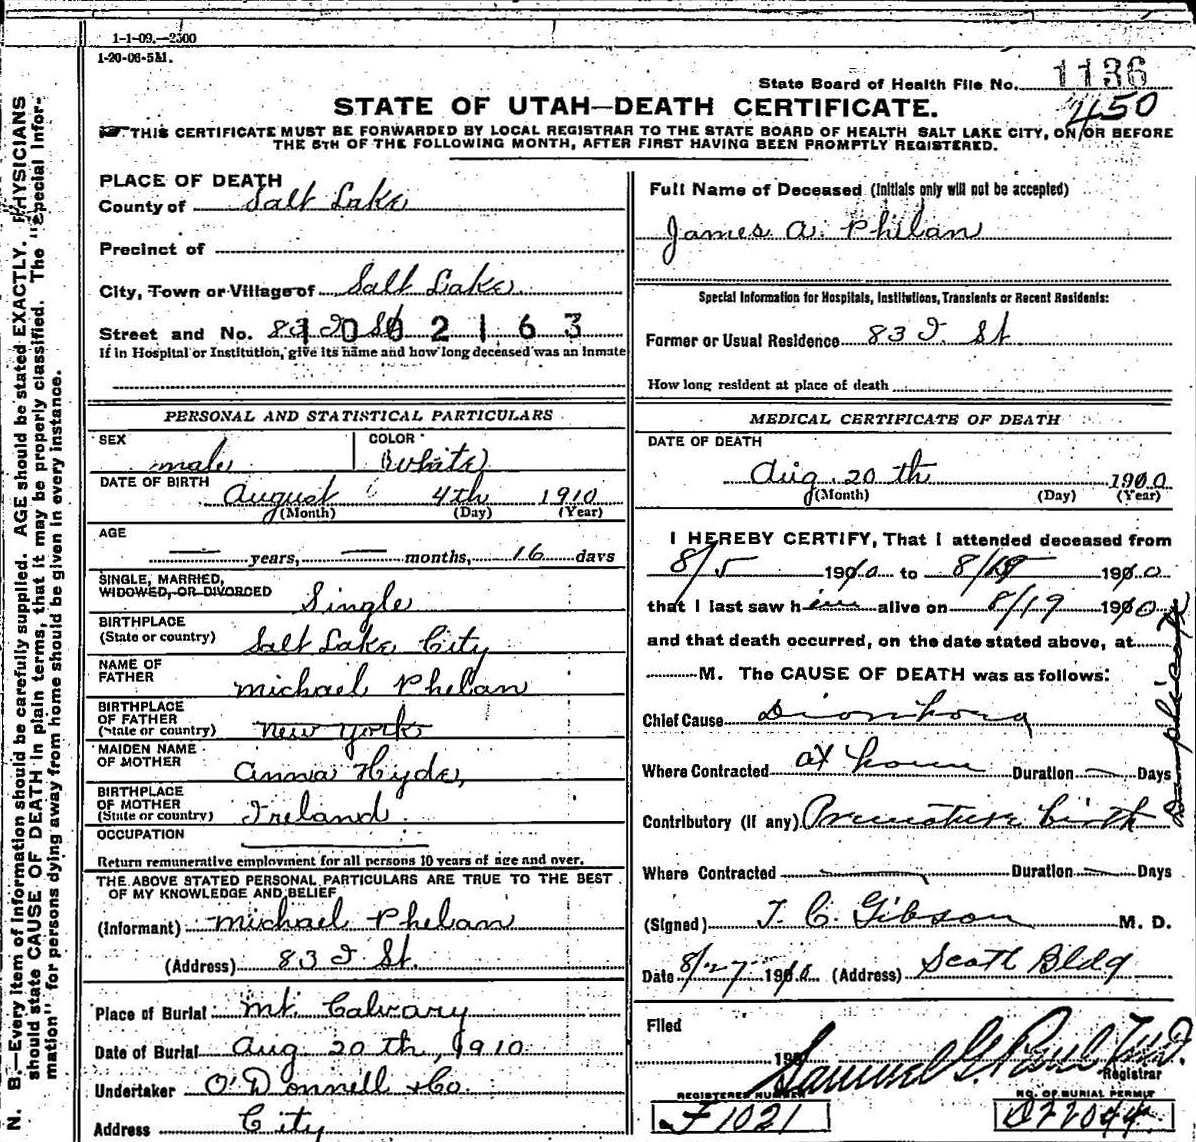 1-1-09.—2500
1-20-06-5M.
State Board of Health File No. 1136
450
STATE OF UTAH—DEATH CERTIFICATE.
THIS CERTIFICATE MUST BE FORWARDED BY LOCAL REGISTRAR TO THE STATE BOARD OF HEALTH SALT LAKE CITY, ON OR BEFORE
THE 5TH OF THE FOLLOWING MONTH, AFTER FIRST HAVING BEEN PROMPTLY REGISTERED.
N. B.—Every item of information should be carefully supplied. AGE should be stated EXACTLY. PHYSICIANS
should state CAUSE OF DEATH in plain terms, that it may be properly classified. The "Special Infor-
mation" for persons dying away from home should be given in every instance.
PLACE OF DEATH
County of Salt Lake
Precinct of
City, Town or Village of Salt Lake
Street and No. 83 I St
1002163
If in Hospital or Institution, give its name and how long deceased was an inmate
PERSONAL AND STATISTICAL PARTICULARS
SEX male COLOR White
DATE OF BIRTH August 4th 1910
(Month) (Day) (Year)
AGE
— years, — months, 16 days
SINGLE, MARRIED,
WIDOWED, OR DIVORCED Single
BIRTHPLACE
(State or country) Salt Lake City
NAME OF
FATHER Michael Phelan
BIRTHPLACE
OF FATHER
(State or country) New York
MAIDEN NAME
OF MOTHER Anna Hyde,
BIRTHPLACE
OF MOTHER
(State or country) Ireland.
OCCUPATION
Return remunerative employment for all persons 10 years of age and over.
THE ABOVE STATED PERSONAL PARTICULARS ARE TRUE TO THE BEST
OF MY KNOWLEDGE AND BELIEF
(Informant) Michael Phelan
(Address) 83 I St.
Place of Burial Mt. Calvary
Date of Burial Aug 20th, 1910
Undertaker O'Donnell & Co.
Address City
Full Name of Deceased (Initials only will not be accepted)
James A. Phelan
Special Information for Hospitals, Institutions, Transients or Recent Residents:
Former or Usual Residence 83 I. St
How long resident at place of death
MEDICAL CERTIFICATE OF DEATH
DATE OF DEATH
Aug. 20th 1910
(Month) (Day) (Year)
I HEREBY CERTIFY, That I attended deceased from
8/5 1910 to 8/19 1910
that I last saw him alive on 8/19 1910
and that death occurred, on the date stated above, at
M. The CAUSE OF DEATH was as follows:
Chief Cause
Where Contracted at home Duration — Days
Contributory (if any) Premature birth
Where Contracted — Duration — Days
(Signed) T. C. Gibson M. D.
Date 8/27 1910 (Address) Scott Bldg
Duplicate
Filed
190 Samuel G. Paul M.D.
Registrar
REGISTERED NUMBER
F1021
NO. OF BURIAL PERMIT